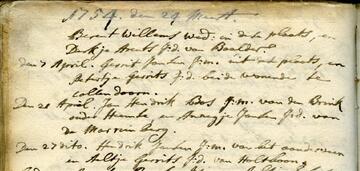 1754. den 24 Meert.
Berent Willems wed: in dese plaets, en
Derkje Arents J:d. van Beulder
den 7 April. Gerrit Jansen J:m. uit dese plaets, en
Gerrits J:d. beide wonende te
collendoorn.
Den 21 April. Jan Hendrik Bos J:m. van den Brink
onder Hemke en Jansen J:d. van
de Marrienberg.
Den 27 dito. Hendrik Jansen J:m. van het
en Aeltje Gerrits J:d. van Holthoon